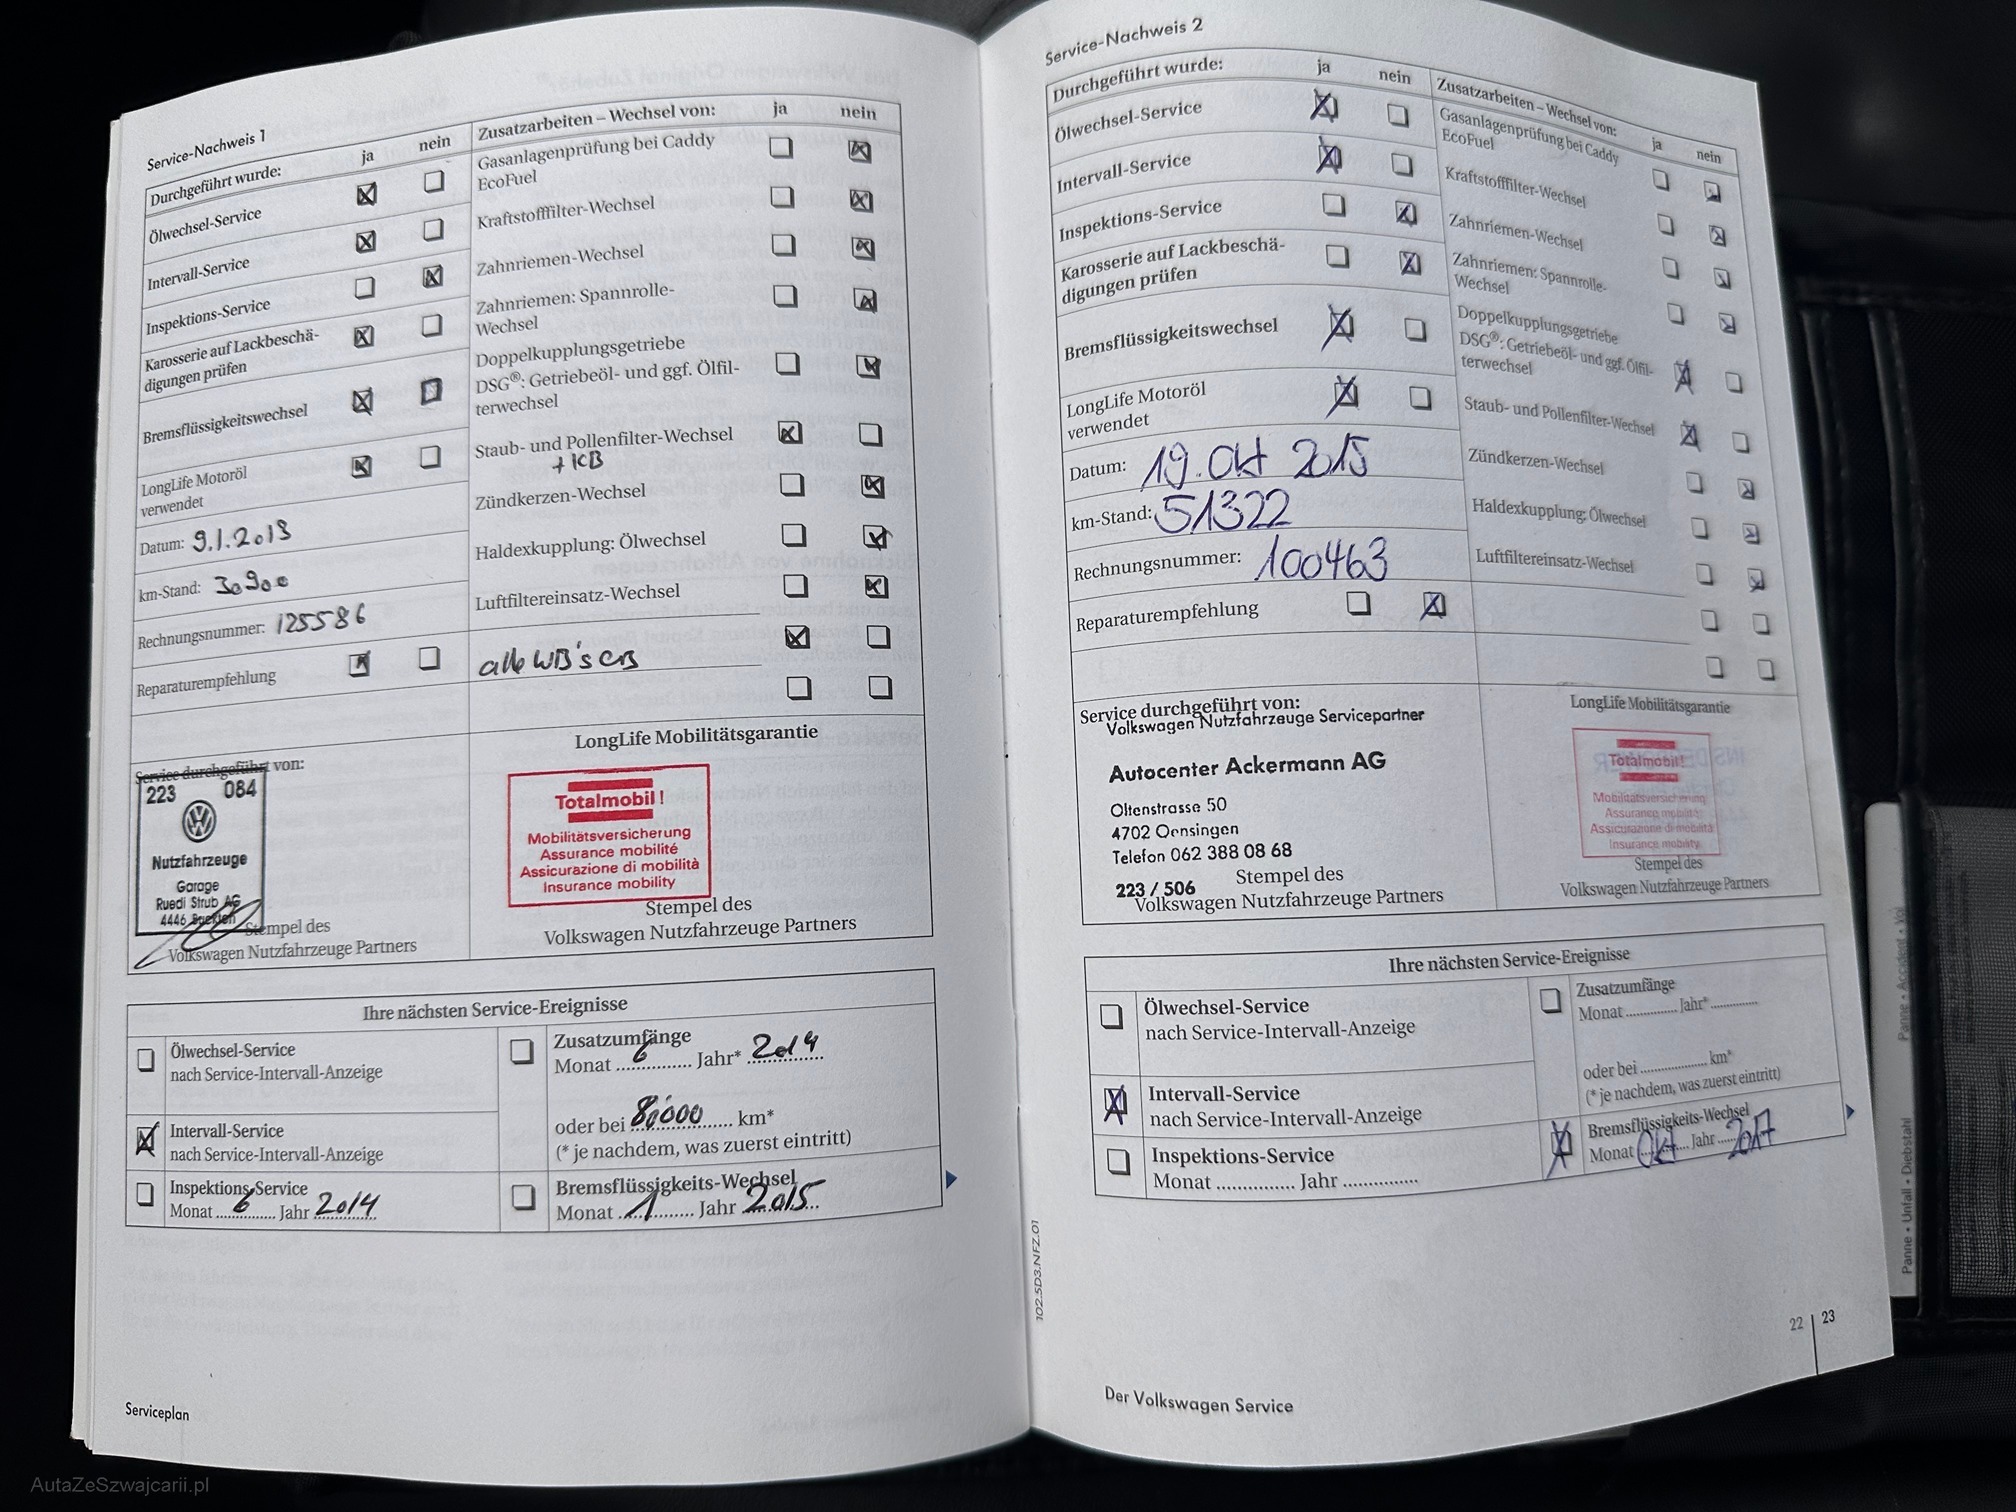 Service-Nachweis 1
Durchgeführt wurde: ja nein
Ölwechsel-Service
Intervall-Service
Inspektions-Service
Karosserie auf Lackbeschä-
digungen prüfen
Bremsflüssigkeitswechsel
LongLife Motoröl
verwendet
Datum: 9.1.2013
km-Stand: 30900
Rechnungsnummer: 125586
Reparaturempfehlung
Zusatzarbeiten – Wechsel von: ja nein
Gasanlagenprüfung bei Caddy
EcoFuel
Kraftstofffilter-Wechsel
Zahnriemen-Wechsel
Zahnriemen: Spannrolle-
Wechsel
Doppelkupplungsgetriebe
DSG®: Getriebeöl- und ggf. Ölfil-
terwechsel
Staub- und Pollenfilter-Wechsel
+ KB
Zündkerzen-Wechsel
Haldexkupplung: Ölwechsel
Luftfiltereinsatz-Wechsel
alle WB's
Service durchgeführt von:
223 084
Nutzfahrzeuge
Garage
Ruedi Strub AG
4446 Buckten
Stempel des
Volkswagen Nutzfahrzeuge Partners
LongLife Mobilitätsgarantie
Totalmobil!
Mobilitätsversicherung
Assurance mobilité
Assicurazione di mobilità
Insurance mobility
Stempel des
Volkswagen Nutzfahrzeuge Partners
Ihre nächsten Service-Ereignisse
Ölwechsel-Service
nach Service-Intervall-Anzeige
Intervall-Service
nach Service-Intervall-Anzeige
Inspektions-Service
Monat 6 Jahr 2014
Zusatzumfänge
Monat 6 Jahr* 2014
oder bei 80000 km*
(* je nachdem, was zuerst eintritt)
Bremsflüssigkeits-Wechsel
Monat 1 Jahr 2015
Serviceplan
Service-Nachweis 2
Durchgeführt wurde: ja nein
Ölwechsel-Service
Intervall-Service
Inspektions-Service
Karosserie auf Lackbeschä-
digungen prüfen
Bremsflüssigkeitswechsel
LongLife Motoröl
verwendet
Datum: 19. Okt 2015
km-Stand: 51322
Rechnungsnummer: 100463
Reparaturempfehlung
Zusatzarbeiten – Wechsel von: ja nein
Gasanlagenprüfung bei Caddy
EcoFuel
Kraftstofffilter-Wechsel
Zahnriemen-Wechsel
Zahnriemen: Spannrolle-
Wechsel
Doppelkupplungsgetriebe
DSG®: Getriebeöl- und ggf. Ölfil-
terwechsel
Staub- und Pollenfilter-Wechsel
Zündkerzen-Wechsel
Haldexkupplung: Ölwechsel
Luftfiltereinsatz-Wechsel
Service durchgeführt von:
Volkswagen Nutzfahrzeuge Servicepartner
Autocenter Ackermann AG
Oltenstrasse 50
4702 Oensingen
Telefon 062 388 08 68
223 / 506
Stempel des
Volkswagen Nutzfahrzeuge Partners
LongLife Mobilitätsgarantie
Totalmobil!
Mobilitätsversicherung
Assurance mobilité
Assicurazione di mobilità
Insurance mobility
Stempel des
Volkswagen Nutzfahrzeuge Partners
Ihre nächsten Service-Ereignisse
Ölwechsel-Service
nach Service-Intervall-Anzeige
Intervall-Service
nach Service-Intervall-Anzeige
Inspektions-Service
Monat ............... Jahr ...............
Zusatzumfänge
Monat ............... Jahr* ............
oder bei .................... km*
(* je nachdem, was zuerst eintritt)
Bremsflüssigkeits-Wechsel
Monat Okt Jahr 2017
102.5D3.NFZ.01
22 | 23
Der Volkswagen Service
Panne • Accident • Vol
Panne • Unfall • Diebstahl
AutaZeSzwajcarii.pl